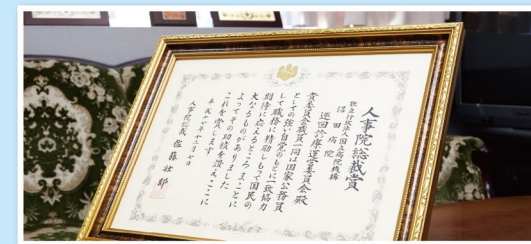 人事院総裁賞
独立行政法人国立病院機構
沼田病院
巡回診療運営委員会殿
貴委員会職員一同は国家公務員
としての強い自覚のもと一致協力
して職務に精励しもって国民の
期待に応えるところまことに
大なるものがありました
よってその功績を讃えここに
これを賞します
平成十七年十二月七日
人事院総裁 佐藤壮郎